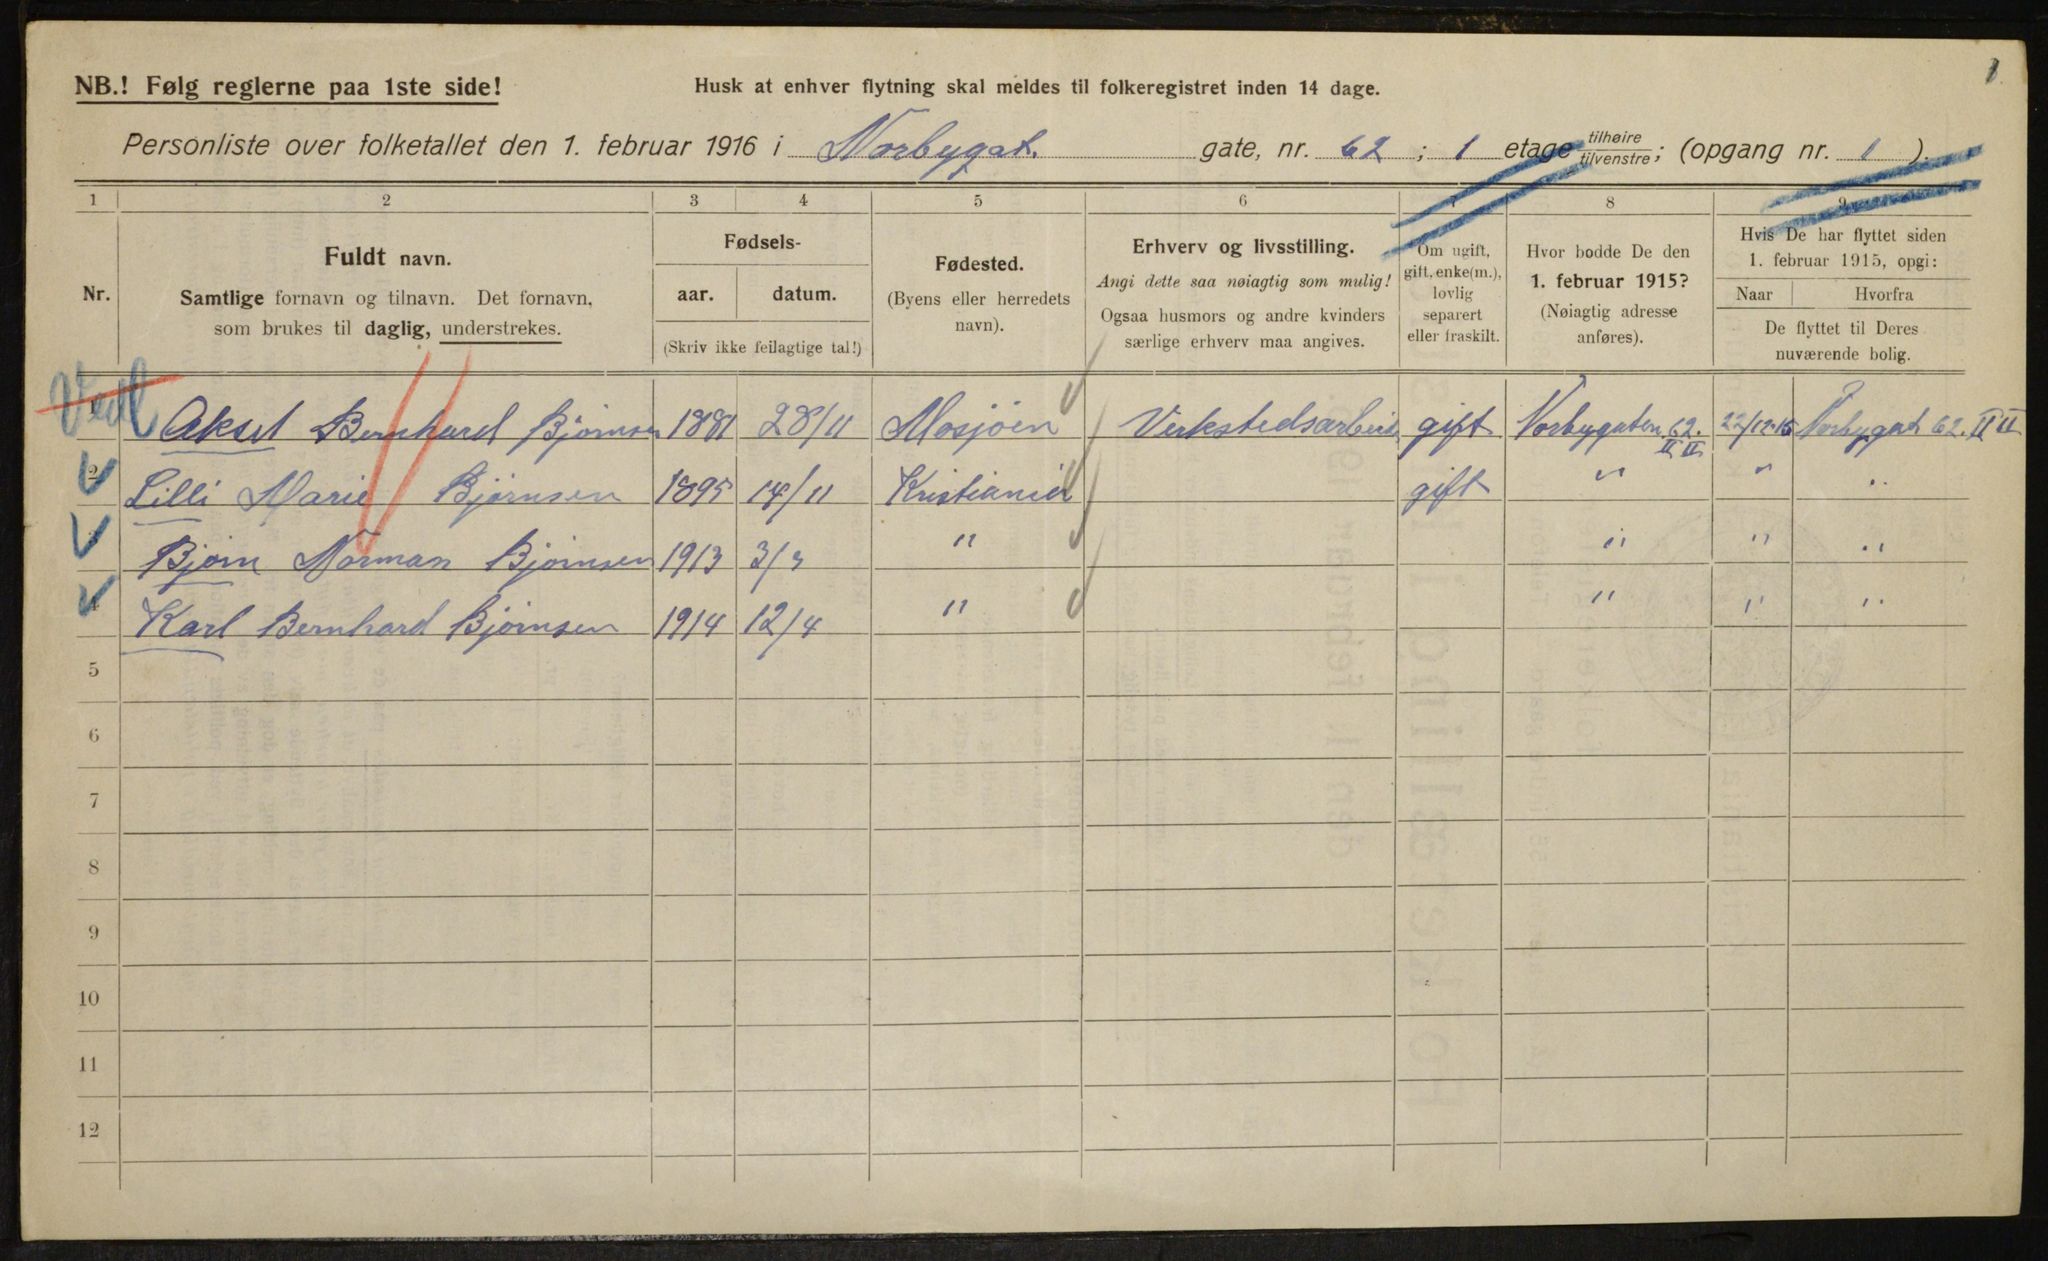 NB.! Følg reglerne paa 1ste side!
Husk at enhver flytning skal meldes til folkeregistret inden 14 dage.
1
Personliste over folketallet den 1. februar 1916 i Norbygat. gate, nr. 62 ; 1 etage tilhøire tilvenstre ; (opgang nr. 1 ).
1 2 3 4 5 6 7 8 9
Nr.
Fuldt navn.
Samtlige fornavn og tilnavn. Det fornavn,
som brukes til daglig, understrekes.
Fødsels-
aar. datum.
(Skriv ikke feilagtige tal!)
Fødested.
(Byens eller herredets
navn).
Erhverv og livsstilling.
Angi dette saa nøiagtig som mulig!
Ogsaa husmors og andre kvinders
særlige erhverv maa angives.
Om ugift,
gift, enke(m.),
lovlig
separert
eller fraskilt.
Hvor bodde De den
1. februar 1915?
(Nøiagtig adresse
anføres).
Hvis De har flyttet siden
1. februar 1915, opgi:
Naar Hvorfra
De flyttet til Deres
nuværende bolig.
1 Aksel Bernhard Bjørnsen 1881 28/11 Mosjöen Verkstedsarbeid gift Norbygaten 62. II II 22/12-15 Norbygat 62. II II
2 Lilli Marie Bjørnsen 1895 14/11 Kristiania gift " " "
3 Bjørn Norman Bjørnsen 1913 3/3 " " " "
4 Karl Bernhard Bjørnsen 1914 12/4 " " " "
5
6
7
8
9
10
11
12